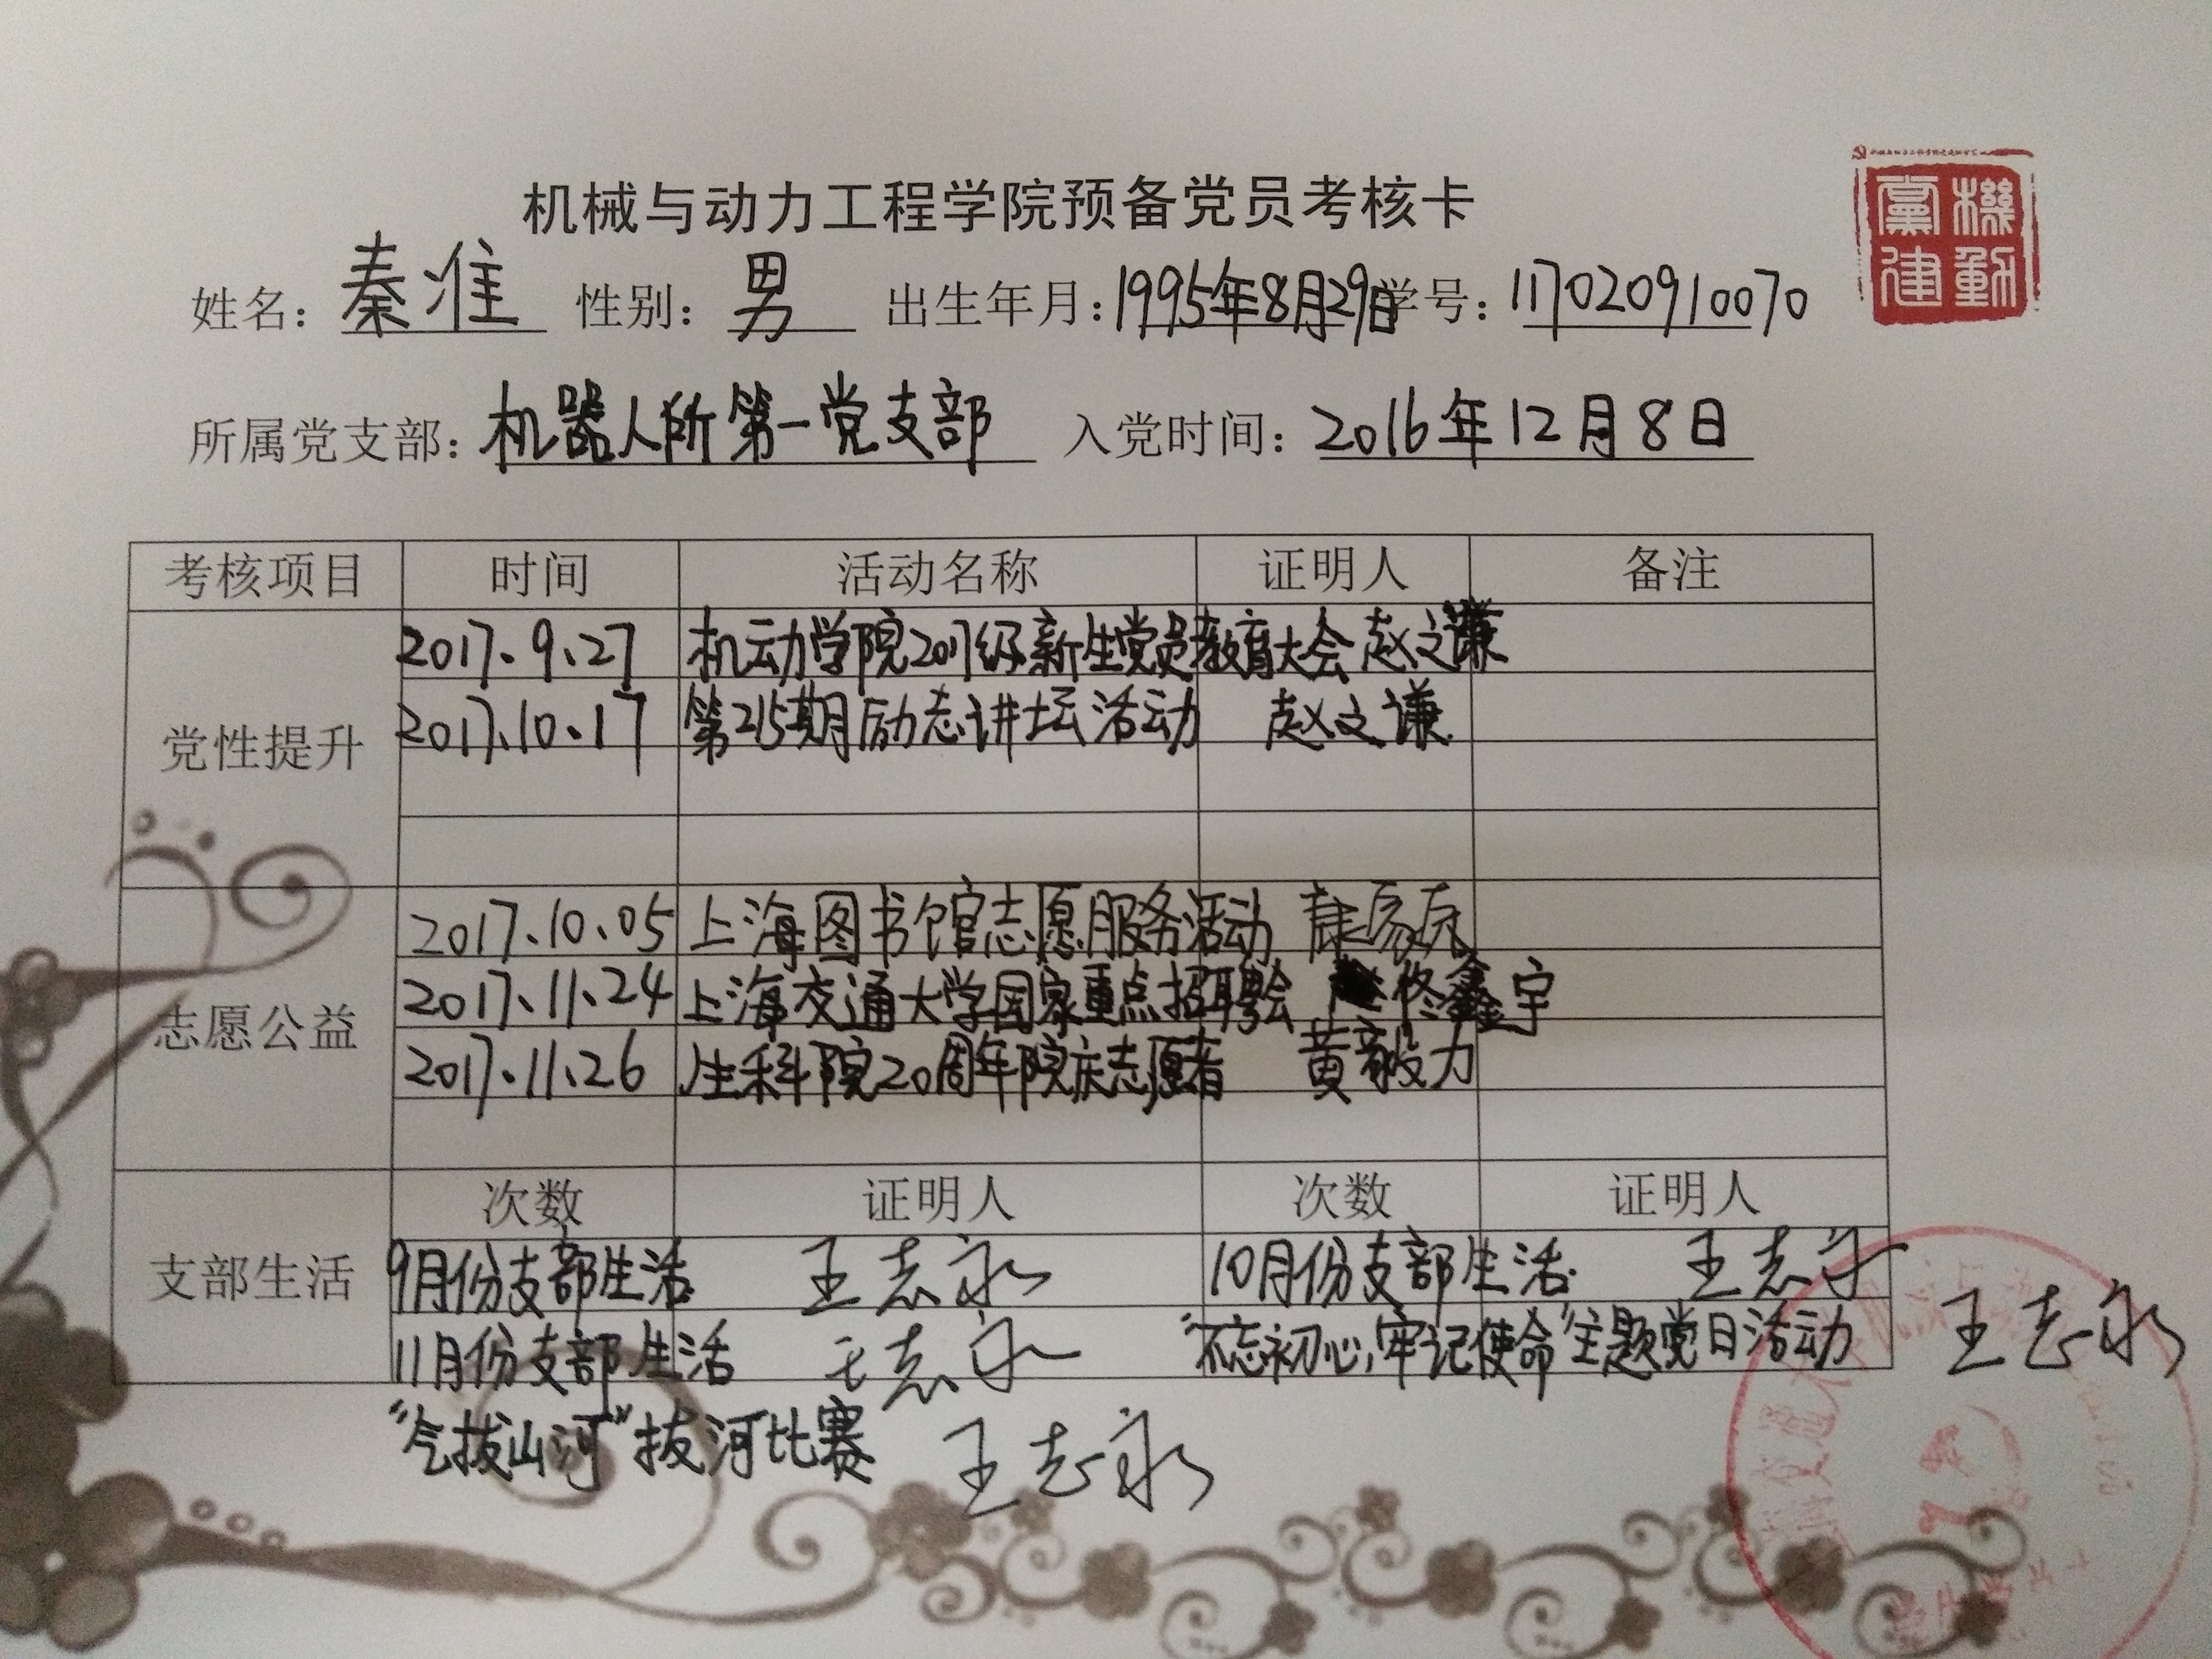 机械与动力工程学院预备党员考核卡
機動黨建
姓名：秦淮 性别：男 出生年月：1995年8月29日 学号：117020910070
所属党支部：机器人所第一党支部 入党时间：2016年12月8日
考核项目 时间 活动名称 证明人 备注
党性提升
2017.9.27 机动学院2017级新生党员教育大会 赵文谦
2017.10.17 第215期励志讲坛活动 赵文谦
志愿公益
2017.10.05 上海图书馆志愿服务活动
2017.11.24 上海交通大学国家重点招聘会 佟鑫宇
2017.11.26 生科院20周年院庆志愿者 黄毅力
支部生活
次数 证明人 次数 证明人
9月份支部生活 王志永 10月份支部生活 王志永
11月份支部生活 王志永 “不忘初心,牢记使命”主题党日活动 王志永
“气拔山河”拔河比赛 王志永